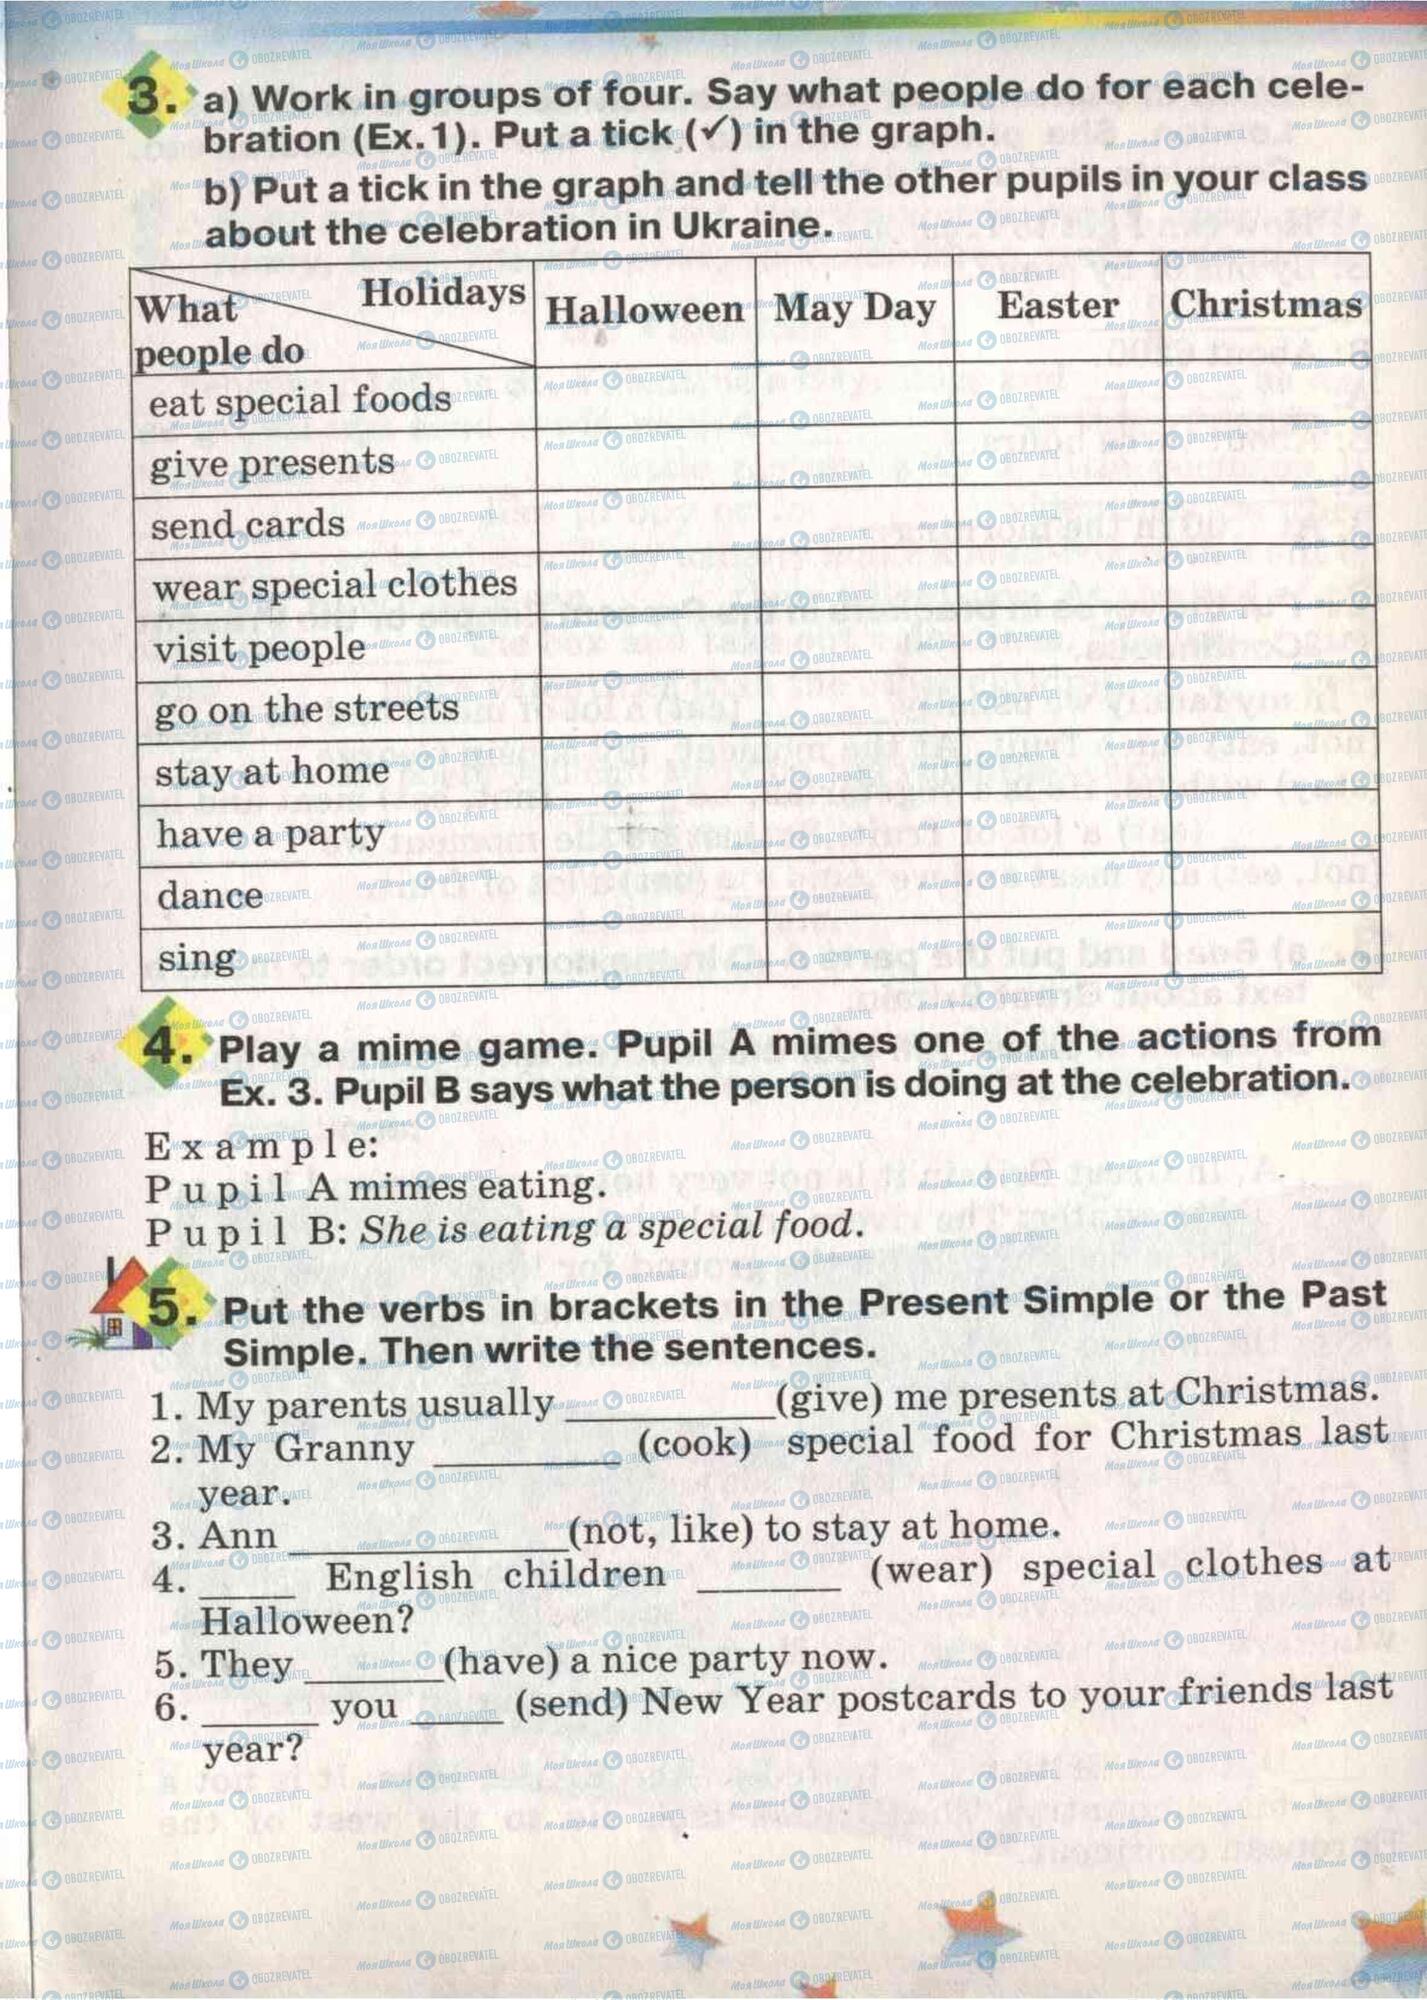 3. a) Work in groups of four. Say what people do for each cele-
bration (Ex. 1). Put a tick (✓) in the graph.
b) Put a tick in the graph and tell the other pupils in your class
about the celebration in Ukraine.
Holidays
What
people do
Halloween May Day Easter Christmas
eat special foods
give presents
send cards
wear special clothes
visit people
go on the streets
stay at home
have a party
dance
sing
4. Play a mime game. Pupil A mimes one of the actions from
Ex. 3. Pupil B says what the person is doing at the celebration.
Example:
Pupil A mimes eating.
Pupil B: She is eating a special food.
5. Put the verbs in brackets in the Present Simple or the Past
Simple. Then write the sentences.
1. My parents usually __________ (give) me presents at Christmas.
2. My Granny _________ (cook) special food for Christmas last
year.
3. Ann _____________ (not, like) to stay at home.
4. _____ English children _______ (wear) special clothes at
Halloween?
5. They _______ (have) a nice party now.
6. ______ you _____ (send) New Year postcards to your friends last
year?
МояШкола OBOZREVATEL